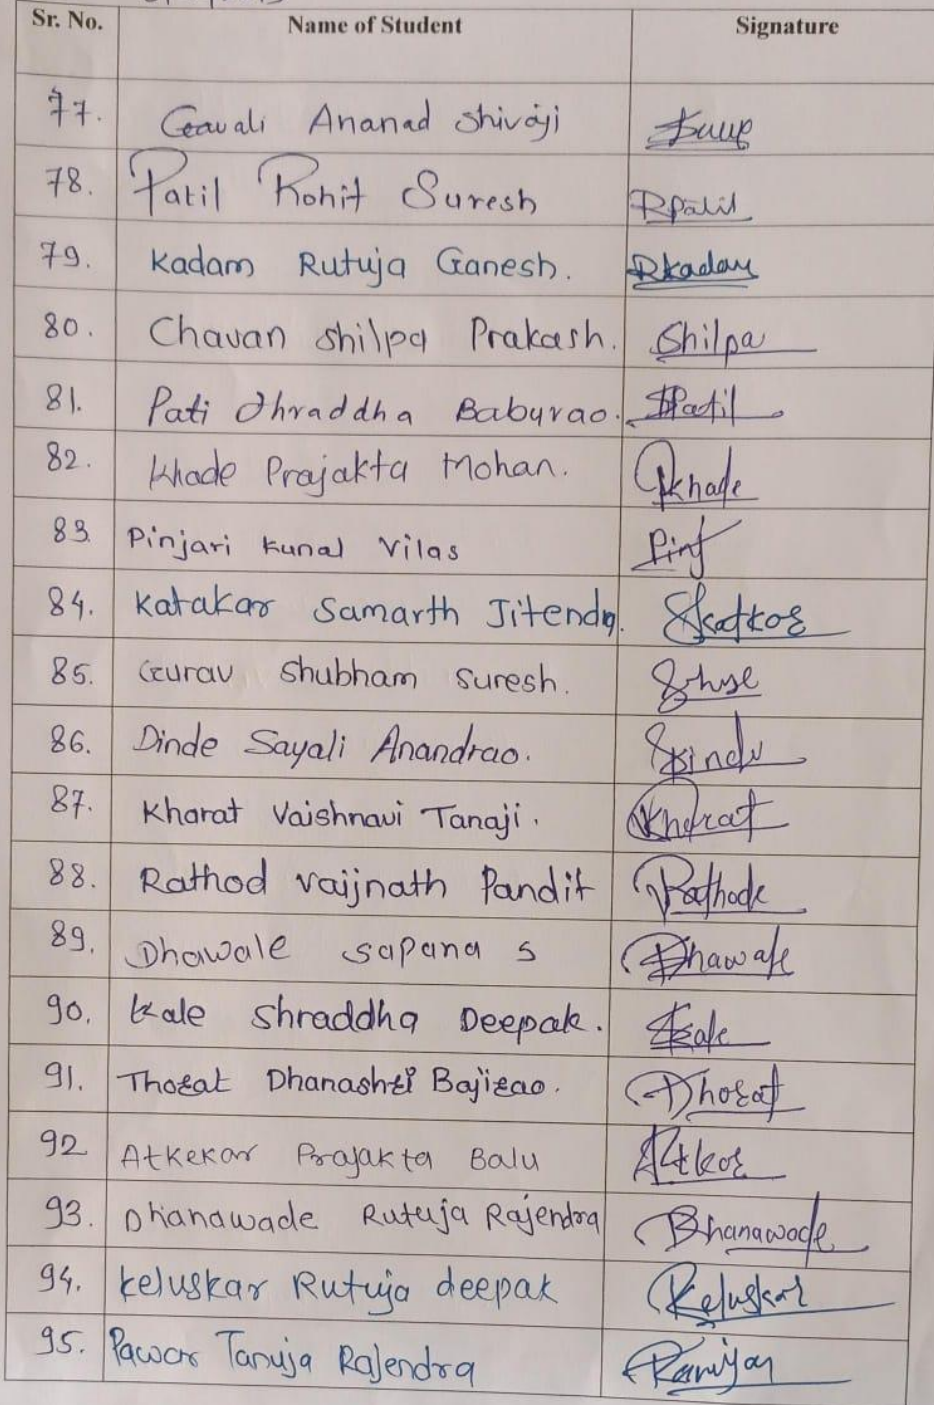 Sr. No. Name of Student Signature
77. Gavali Ananad Shivaji
78. Patil Rohit Suresh Rpatil
79. Kadam Rutuja Ganesh. Rkadam
80. Chavan Shilpa Prakash. Shilpa
81. Pati Shraddha Baburao. SPatil
82. Khade Prajakta Mohan. Pkhade
83. Pinjari Kunal Vilas Pinj
84. Katakar Samarth Jitendra. Skatkar
85. Gurav Shubham Suresh.
86. Dinde Sayali Anandrao.
87. Kharat Vaishnavi Tanaji. Kharat
88. Rathod Vaijnath Pandit Rathode
89. Dhawale Sapana S Dhawale
90. Kale Shraddha Deepak. Skale
91. Thorat Dhanashri Bajirao. Dhorat
92 Atkekar Prajakta Balu Atkar
93. Dhanawade Rutuja Rajendra Dhanawade
94. Keluskar Rutuja deepak Keluskar
95. Pawar Tanuja Rajendra